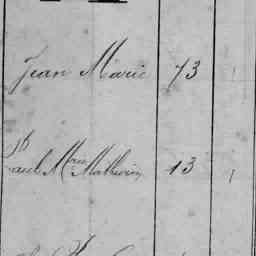 Jean Marie 73
Paul Mrin Mathurin 13